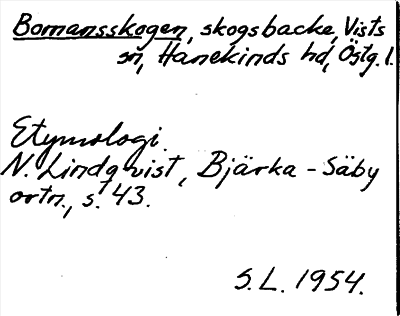 Bomansskogen, skogsbacke, Vists
sn, Hanekinds hd, Östg. l.
Etymologi.
N. Lindqvist, Bjärka-Säby
ortn., s. 43.
S.L. 1954.